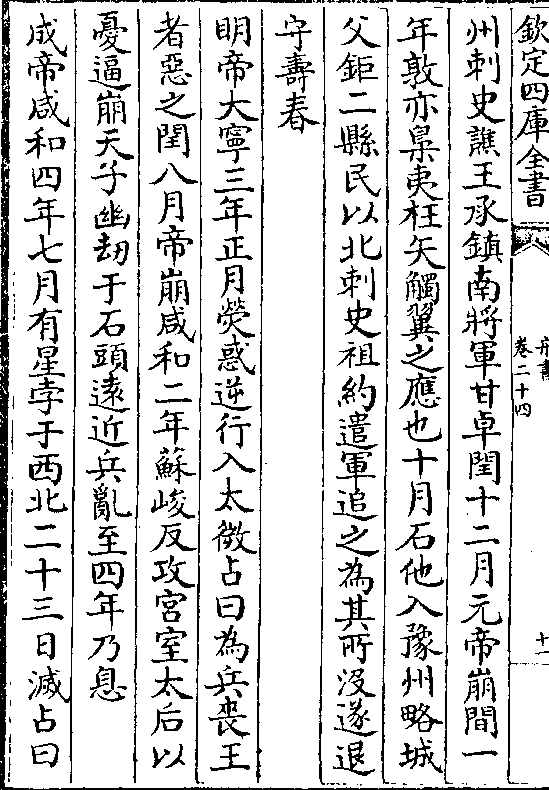 欽定四庫全書
卷二十四
十一
州刺史譙王承鎮南將軍甘卓閏十二月元帝崩間一
年敦亦梟夷枉矢觸翼之應也十月石他入豫州略城
父鉅二縣民以北刺史祖約遣軍追之為其所沒遂退
守壽春
明帝大寧三年正月熒惑逆行入太微占曰為兵喪王
者惡之閏八月帝崩咸和二年蘇峻反攻宮室太后以
憂逼崩天子幽劫于石頭遠近兵亂至四年乃息
成帝咸和四年七月有星孛于西北二十三日滅占曰